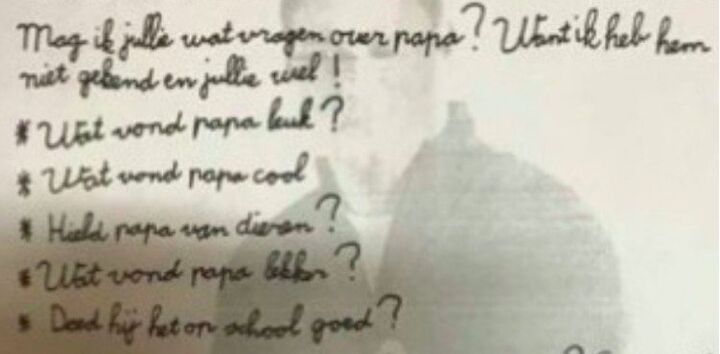 Mag ik jullie wat vragen over papa? Want ik heb hem
niet gekend en jullie wel!
* Wat vond papa leuk?
* Wat vond papa cool
* Hield papa van dieren?
* Wat vond papa lekker?
* Deed hij het op school goed?